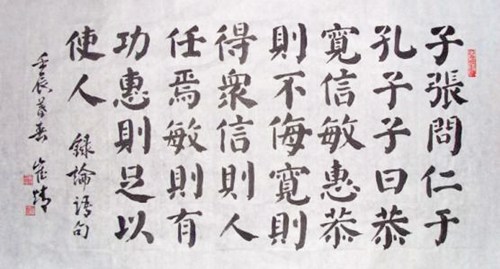 子張問仁于
孔子子曰恭
寬信敏惠恭
則不侮寬則
得衆信則人
任焉敏則有
功惠則足以
使人
録論語句
壬辰春 崔